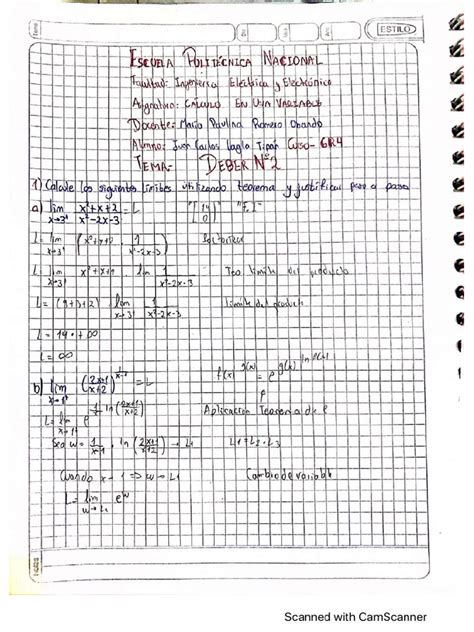 ESTILO
ESCUELA POLITÉCNICA NACIONAL
Facultad: Ingeniería Eléctrica y Electrónica
Asignatura: CÁLCULO EN UNA VARIABLE
Docente: María Paulina Romero Obando
Alumno: Juan Carlos Tipán Curso- GR4
TEMA- DEBER N°2
1) Calcule los siguientes límites utilizando teorema y justificar paso a paso
a) lim x→3⁺ x²+x+2 / x²-2x-3 = L "[14/0]" "F.I"
L = lim x→3⁺ (x²+x+2 · 1 / x²-2x-3)
L = lim x→3⁺ x²+x+2 · lim x→3⁺ 1 / x²-2x-3 Teo límite del producto
L = (9+3+2) · lim x→3⁺ 1 / x²-2x-3 límite del producto
L = 14 · +∞
L = ∞
b) lim x→1⁺ (2x+1 / x+2)^(1/x-1) = L f(x)^g(x) = e^(g(x) ln f(x))
L = lim x→1⁺ e^(1/x-1 ln(2x+1 / x+2)) Aplicación Teorema de e
Sea w = 1/x-1 · ln(2x+1 / x+2) → L1 L1 = L2 · L3
Cuando x→1 ⇒ w→L1 Cambio de variable
L = lim w→L1 e^w
Scanned with CamScanner